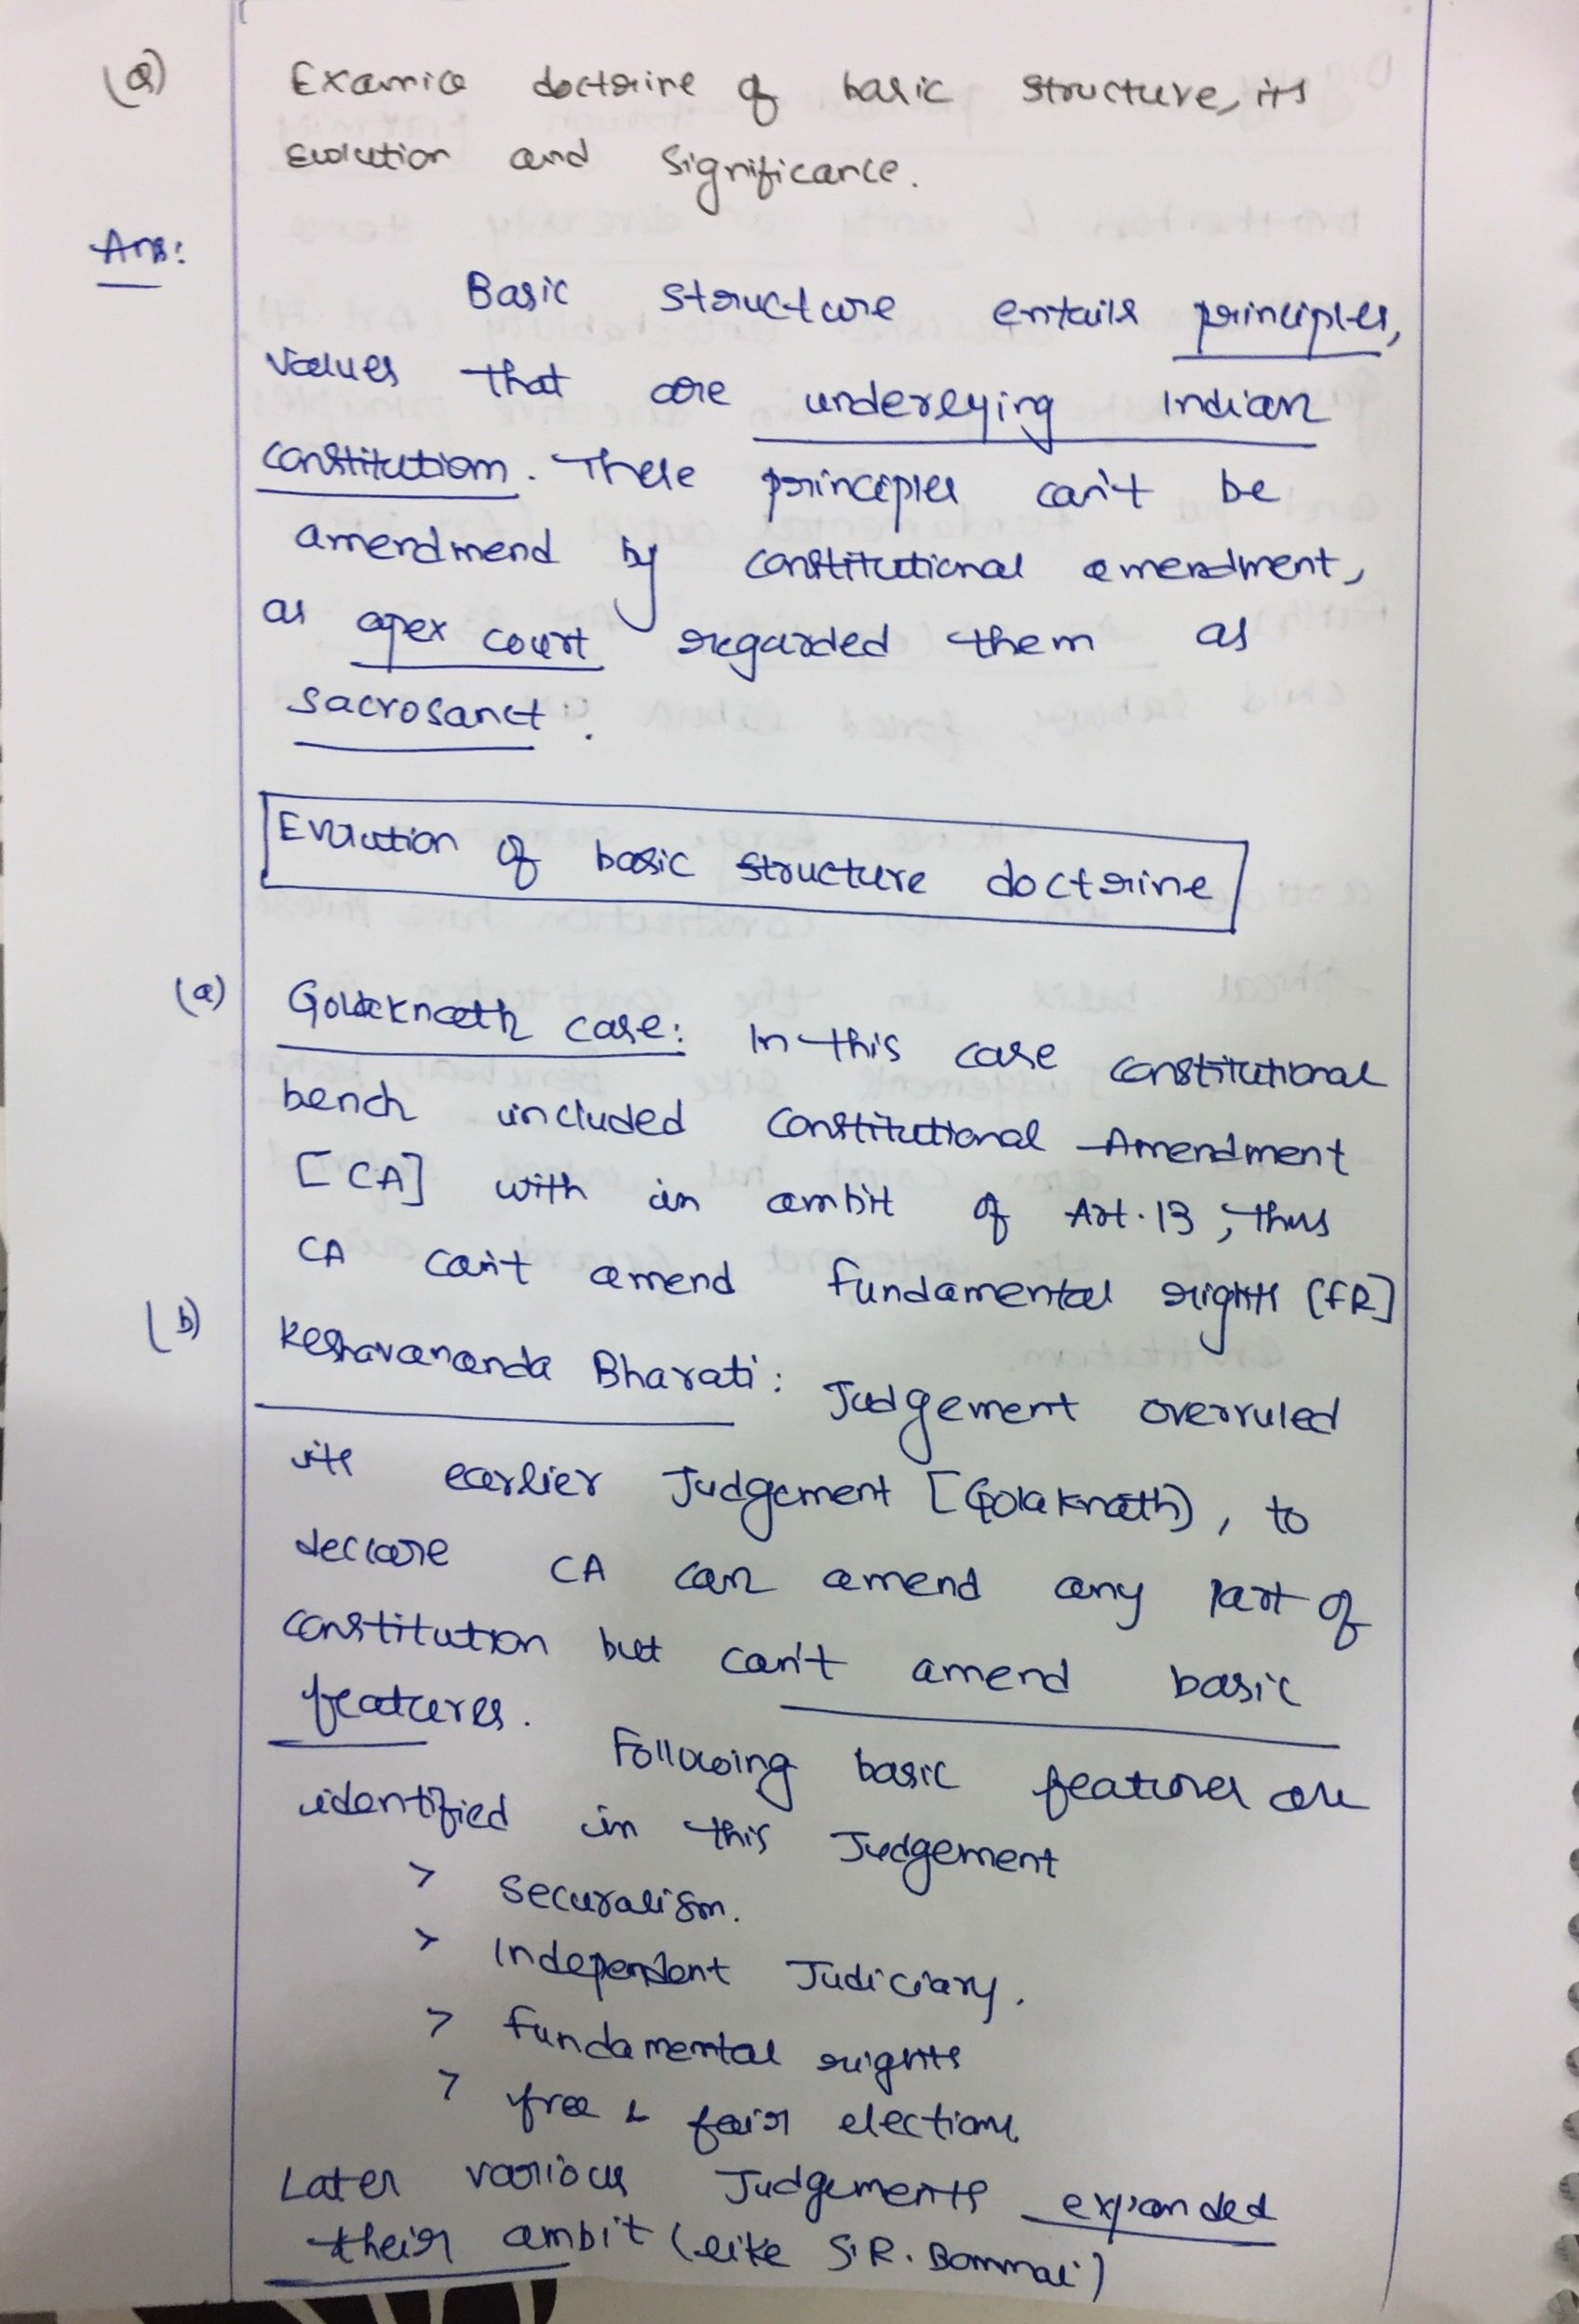 (Q) Examice doctrine of basic structure, its
Evolution and significance.
Ans:
Basic structure entails principles,
values that are underlying Indian
constitution. These principles can't be
amendmend by constitutional amendment,
as apex court regarded them as
sacrosanct.
Evolution of basic structure doctrine
(a) Golaknath case: In this case constitutional
bench included Constitutional Amendment
[CA] with in ambit of Art.13, thus
CA can't amend fundamental rights [FR]
(b) Keshavananda Bharati: Judgement overruled
its earlier Judgement [Golaknath), to
declare CA can amend any part of
constitution but can't amend basic
features. Following basic features are
identified in this Judgement
> Securalism.
> Independent Judiciary.
> fundamental rights
> free & fair elections.
Later various Judgements expanded
their ambit (like S.R. Bommai)